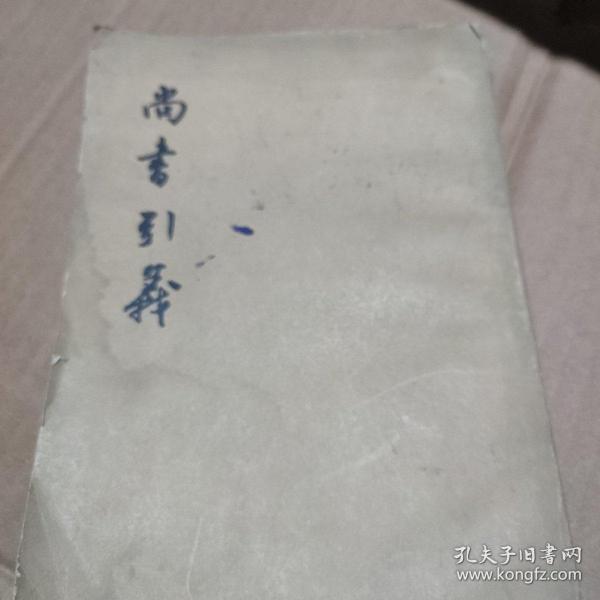 尚书引義
孔夫子旧書网
www.kongfz.com